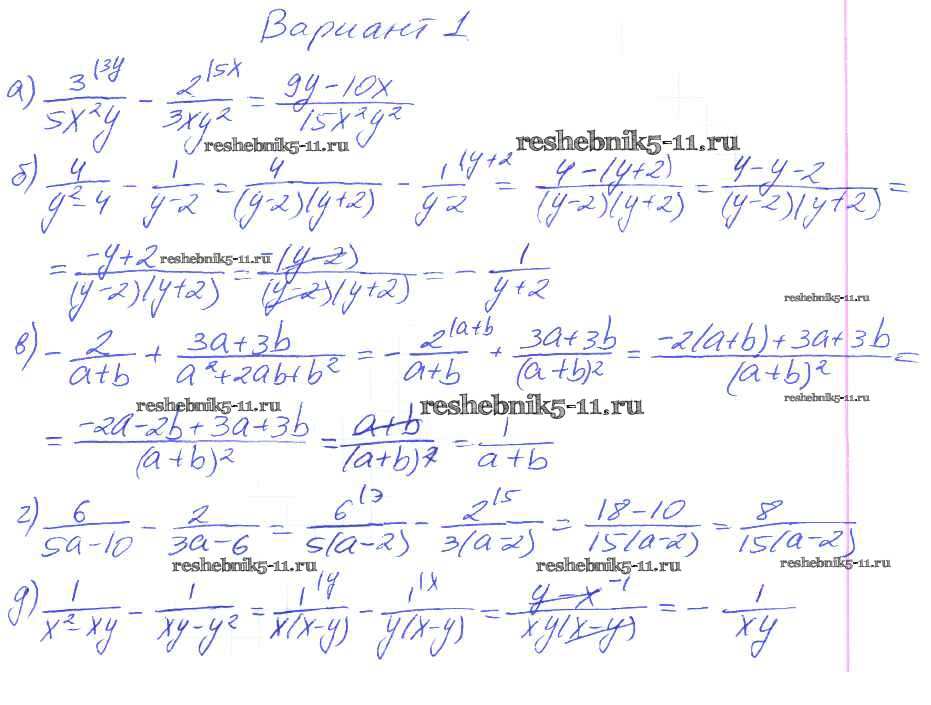 Вариант 1
а) 3^(3y / 5x²y - 2^(5x / 3xy² = 9y-10x / 15x²y²
reshebnik5-11.ru reshebnik5-11.ru
б) 4 / y²-4 - 1 / y-2 = 4 / (y-2)(y+2) - 1^(y+2 / y-2 = 4-(y+2) / (y-2)(y+2) = 4-y-2 / (y-2)(y+2) =
= -y+2 / (y-2)(y+2) = -(y-2) / (y-2)(y+2) = - 1 / y+2
reshebnik5-11.ru reshebnik5-11.ru
в) - 2 / a+b + 3a+3b / a²+2ab+b² = - 2^(a+b / a+b + 3a+3b / (a+b)² = -2(a+b)+3a+3b / (a+b)² =
reshebnik5-11.ru reshebnik5-11.ru reshebnik5-11.ru
= -2a-2b+3a+3b / (a+b)² = a+b / (a+b)² = 1 / a+b
г) 6 / 5a-10 - 2 / 3a-6 = 6^(3 / 5(a-2) - 2^(5 / 3(a-2) = 18-10 / 15(a-2) = 8 / 15(a-2)
reshebnik5-11.ru reshebnik5-11.ru reshebnik5-11.ru
д) 1 / x²-xy - 1 / xy-y² = 1^(y / x(x-y) - 1^(x / y(x-y) = y-x^-1 / xy(x-y) = - 1 / xy